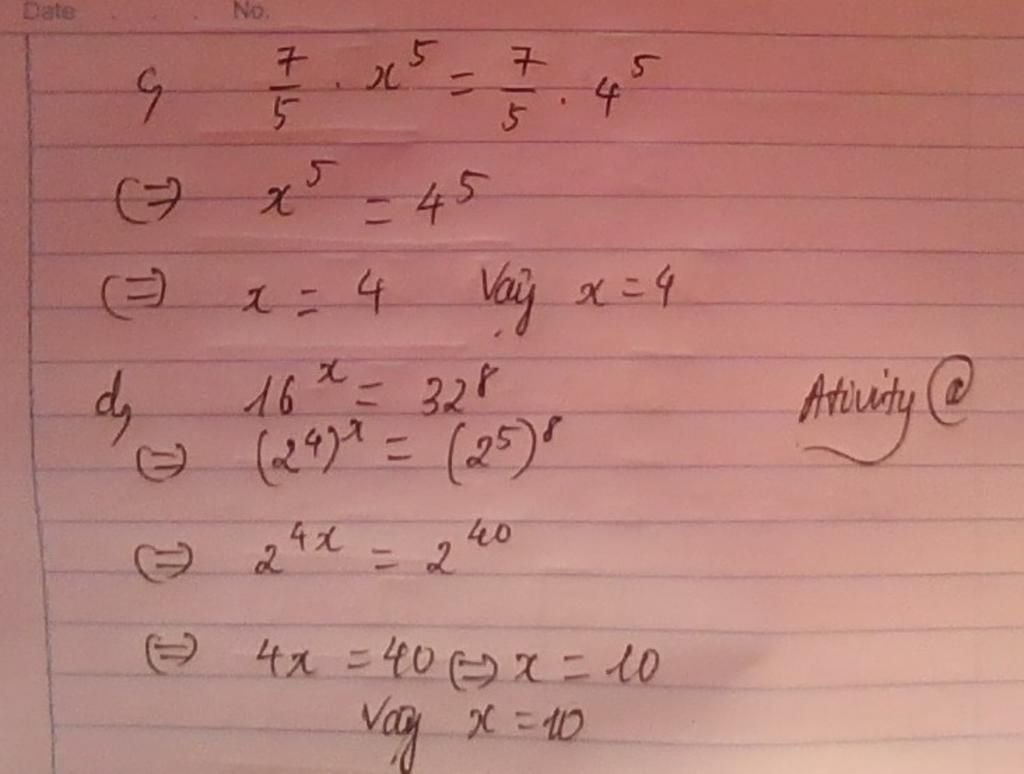 Date No.
c, 7/5 . x^5 = 7/5 . 4^5
(=) x^5 = 4^5
(=) x = 4 Vậy x = 4
d, 16^x = 32^8
(=) (2^4)^x = (2^5)^8
Ativity @
(=) 2^4x = 2^40
(=) 4x = 40 (=) x = 10
Vậy x = 10